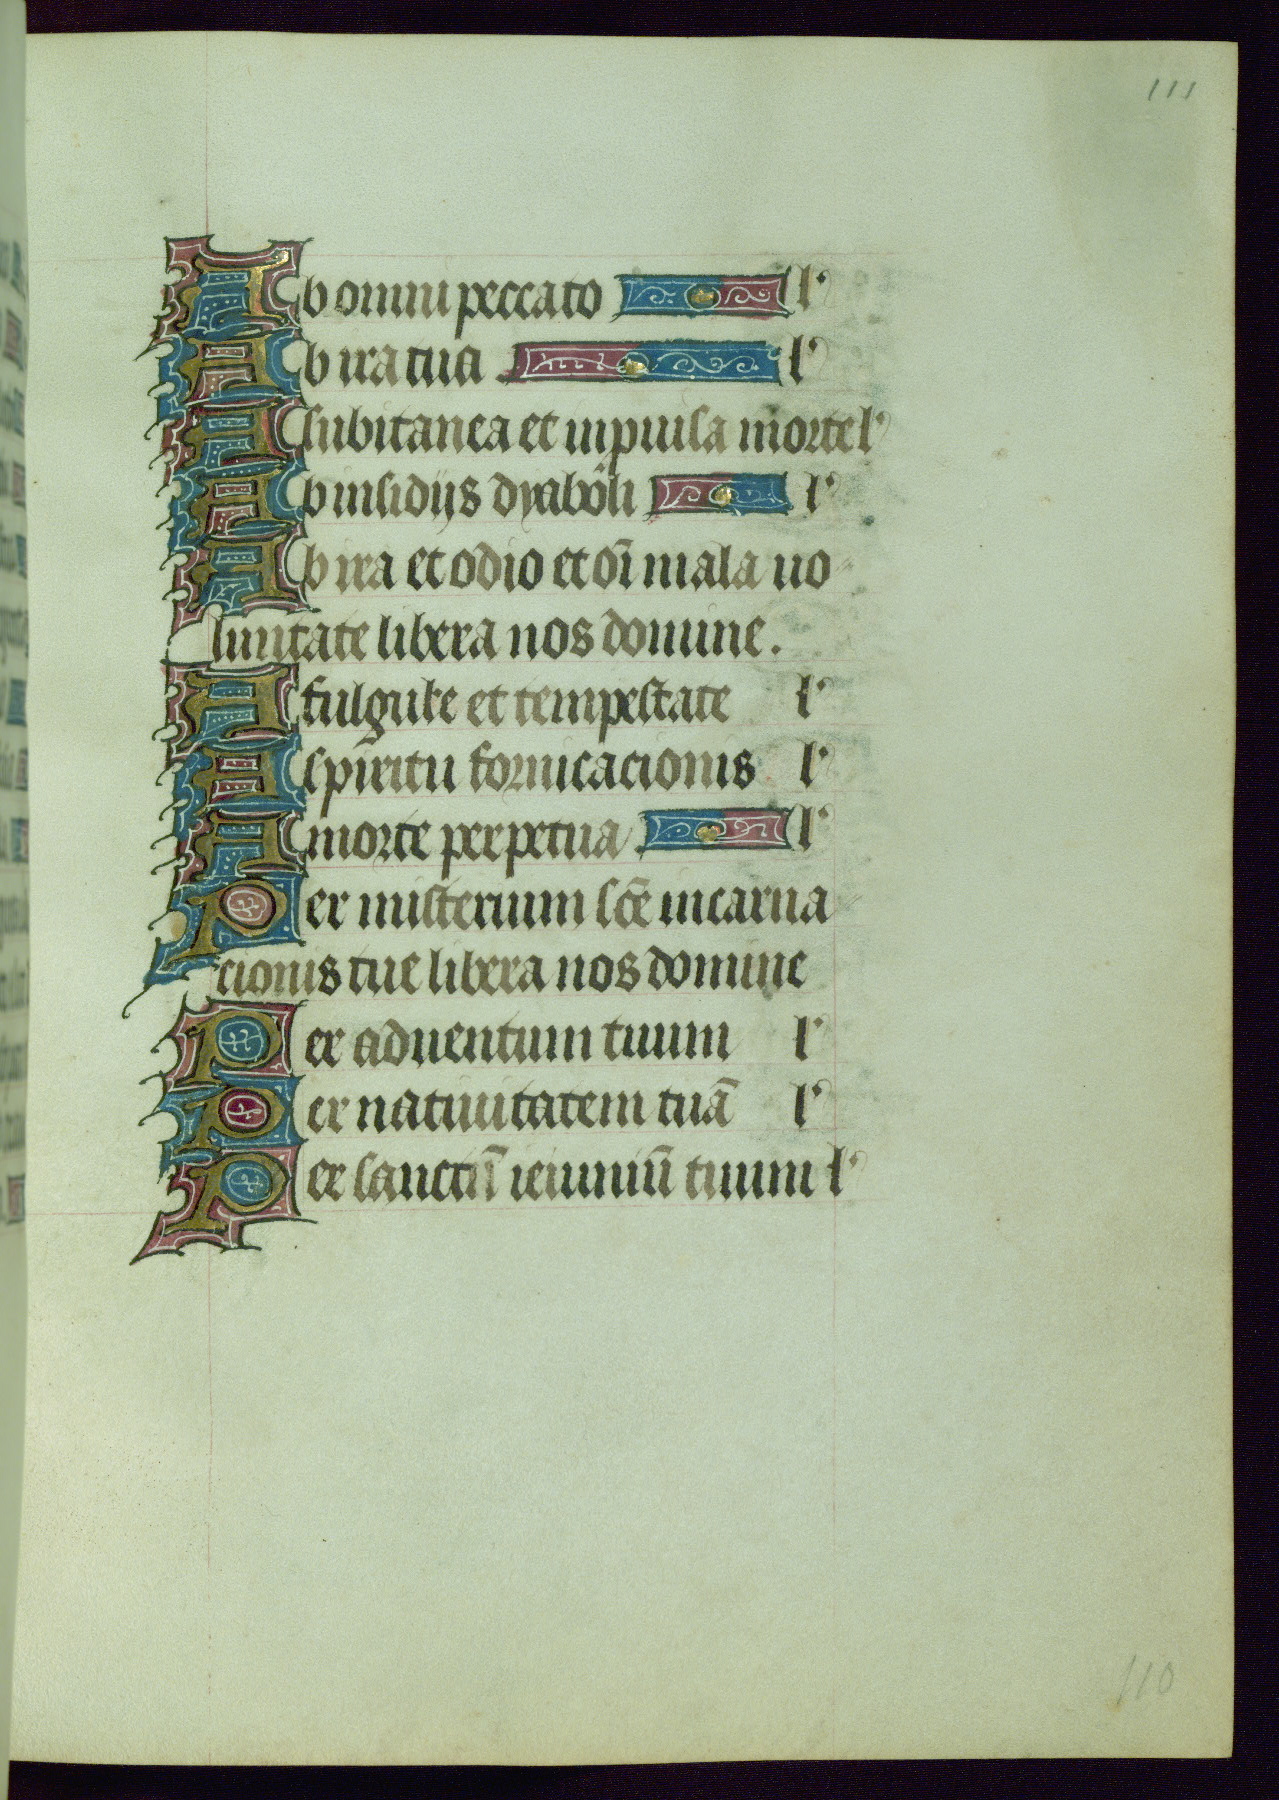 111
Ab omni peccato l'
Ab ira tua l'
A subitanea et inpuisa morte l'
Ab insidijs dyaboli l'
Ab ira et odio et oī mala uo
luntate libera nos domine.
A fulgure et tempestate l'
A spiritu fornicacionis l'
A morte perpetua l'
Per misterium sc̄e incarna
cionis tue libera nos domine
Per aduentum tuum l'
Per natiuitatem tuā l'
Per sanctū ieiuniū tuum l'
110